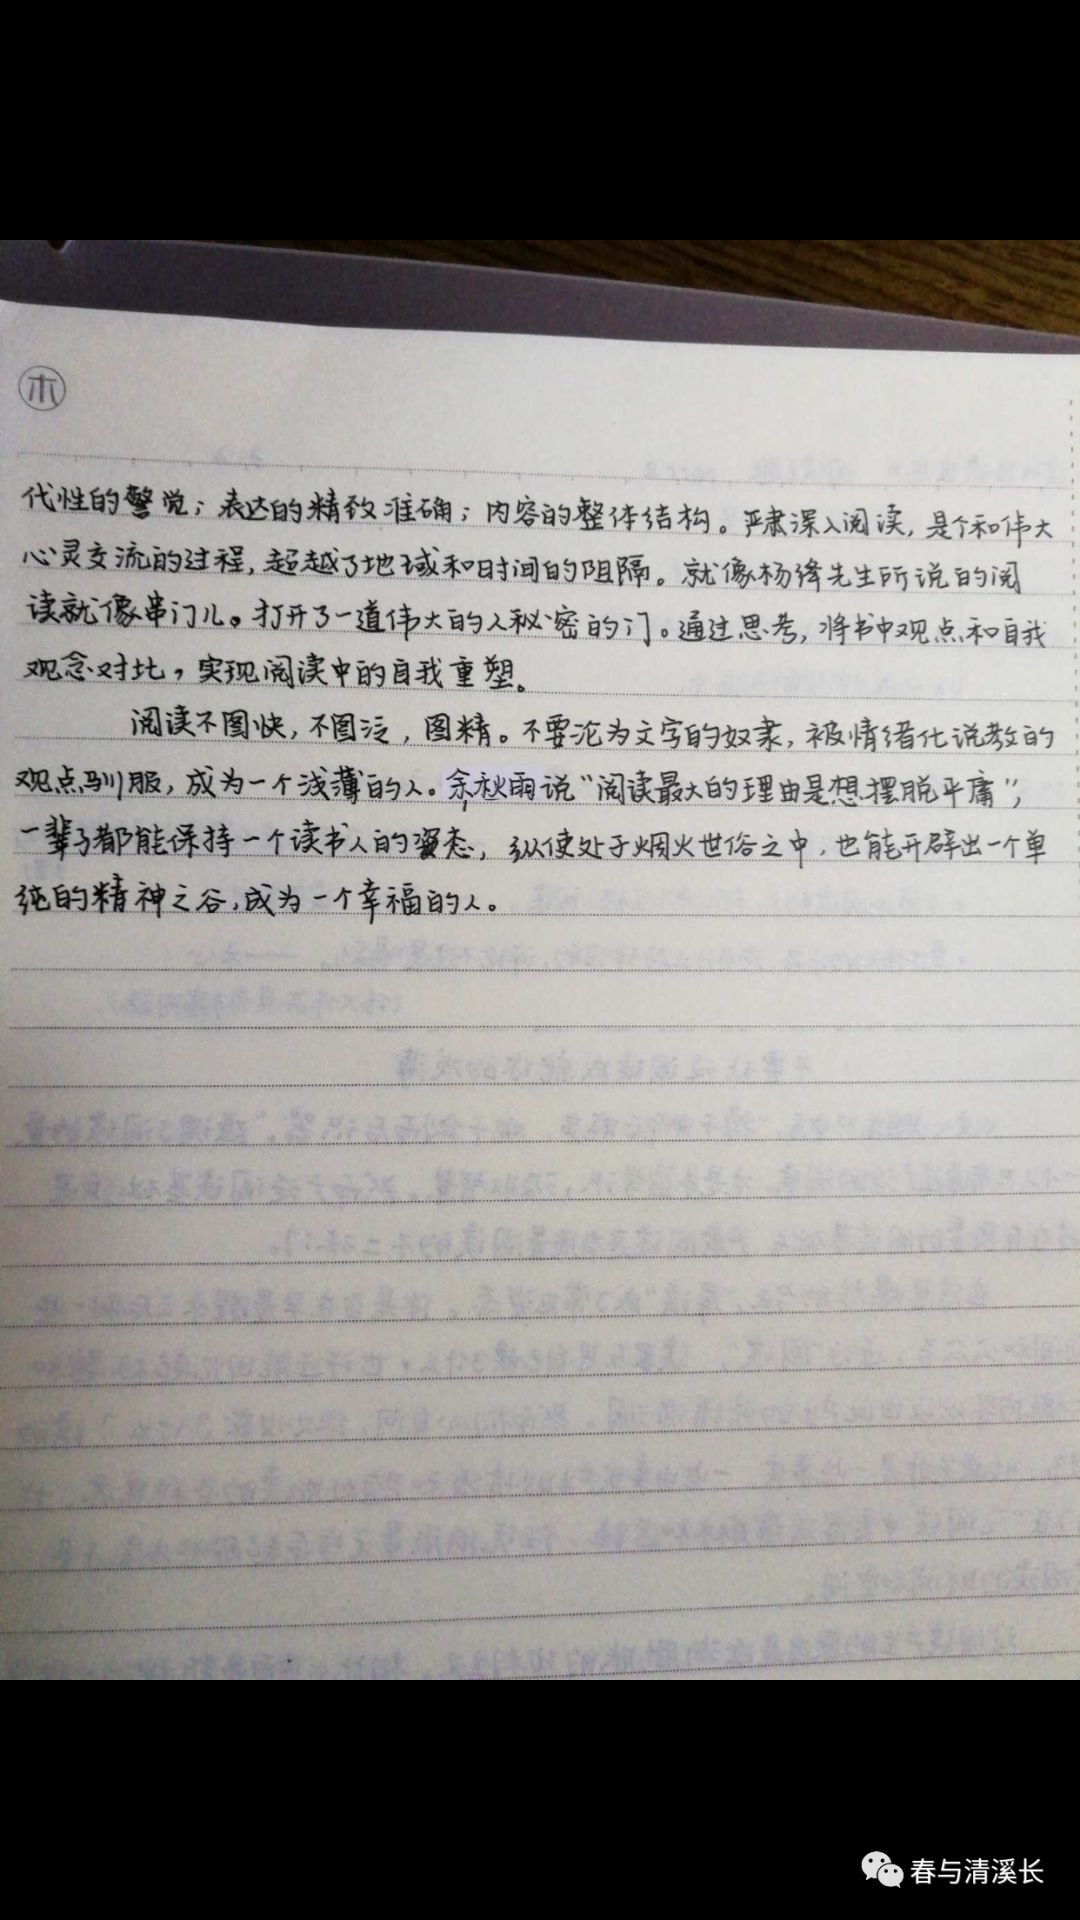 木
代性的警觉；表达的精致准确；内容的整体结构。严肃深入阅读，是个和伟大
心灵交流的过程，超越了地域和时间的阻隔。就像杨绛先生所说的阅
读就像串门儿。打开了一道伟大的人秘密的门。通过思考，将书中观点和自我
观念对比，实现阅读中的自我重塑。
阅读不图快，不图泛，图精。不要沦为文字的奴隶，被情绪化说教的
观点驯服，成为一个浅薄的人。余秋雨说“阅读最大的理由是想摆脱平庸”，
一辈子都能保持一个读书人的姿态，纵使处于烟火世俗之中，也能开辟出一个单
纯的精神之谷，成为一个幸福的人。
春与清溪长